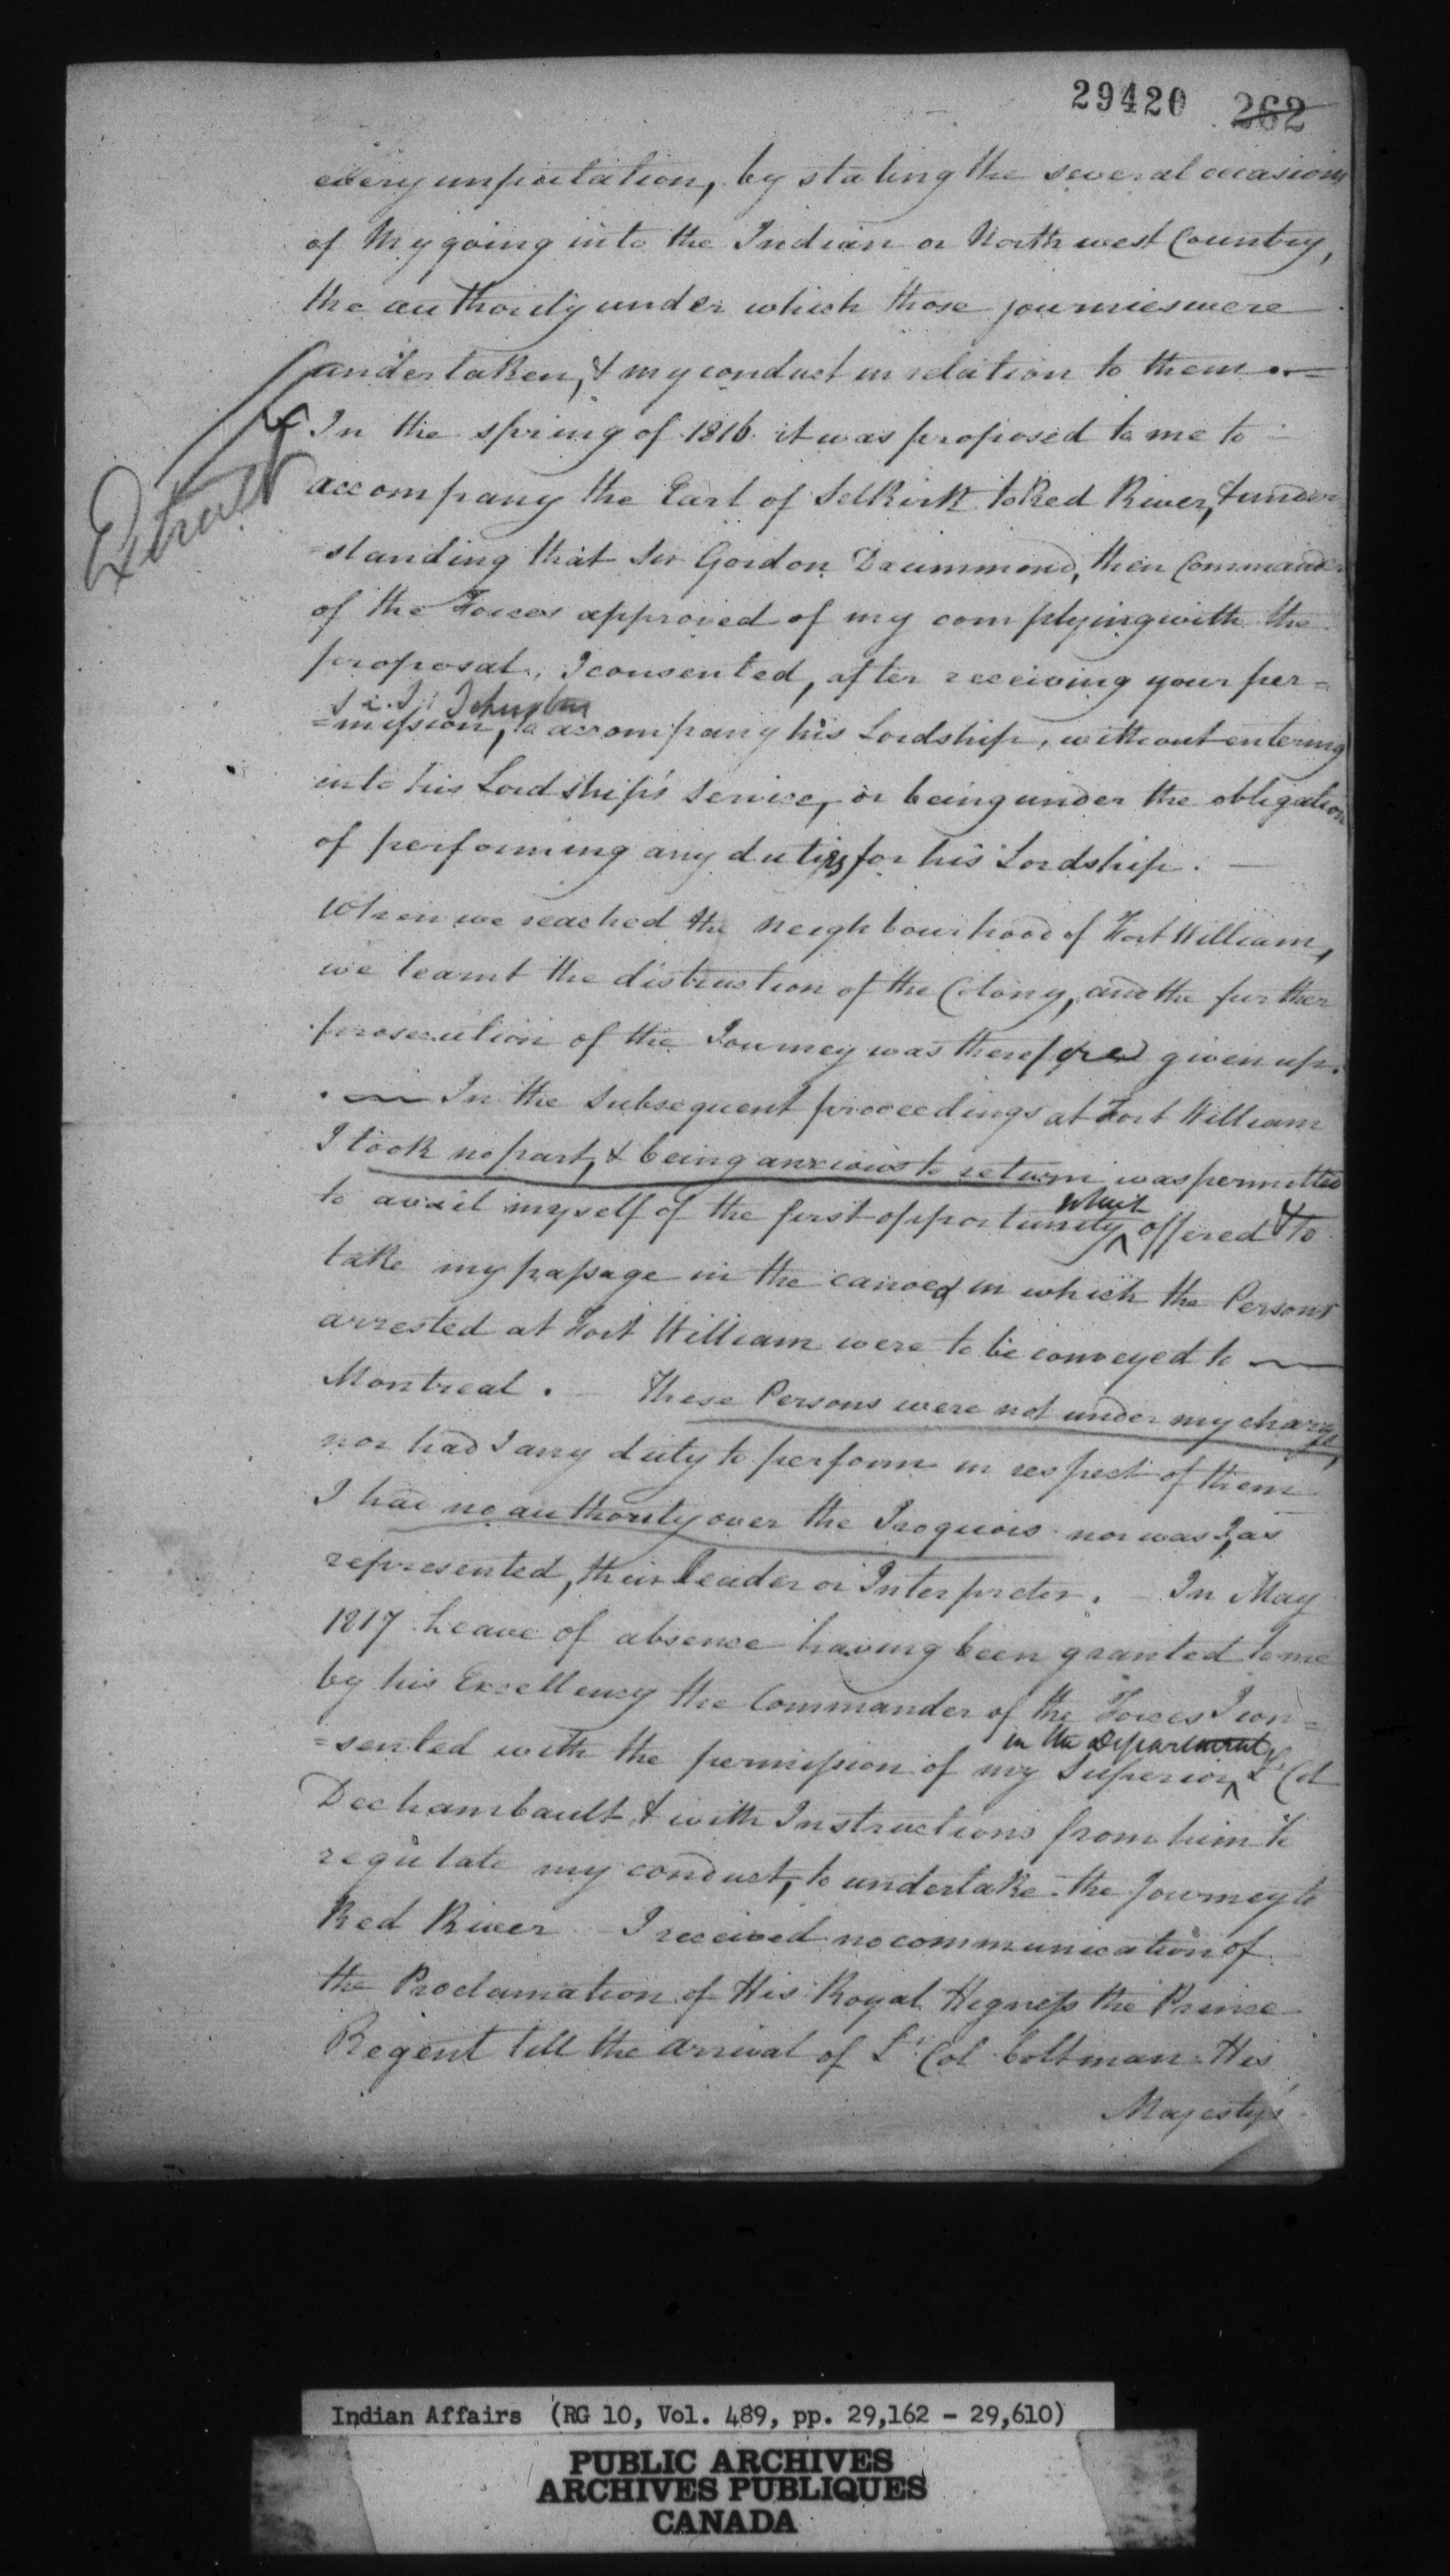 29420 262
every imputation, by stating the several occasions
of My going into the Indian or North west Country,
the authority under which those journies were
undertaken, & my conduct in relation to them. —
Extract
In the spring of 1816 it was proposed to me to
accompany the Earl of Selkirk to Red River, & under
=standing that Sir Gordon Drummond, then Commander
of the Forces approved of my complying with the
proposal, I consented, after receiving your per=
Sir J: Johnston
=mission, to accompany his Lordship, without entering
into his Lordship's Service, or being under the obligation
of performing any duties for his Lordship. —
When we reached the neighbourhood of Fort William,
we learnt the distruction of the Colony, and the further
prosecution of the Journey was therefore given up.
. — In the Subsequent proceedings at Fort William
I took no part, & being anxious to return was permitted
which
to avail myself of the first opportunity ^ offered & to
take my passage in the canoes in which the Persons
arrested at Fort William were to be conveyed to —
Montreal. — These Persons were not under my charge,
nor had I any duty to perform in respect of them
I had no authority over the Iroquois nor was I, as
represented, their leader or Interpreter. — In May
1817 Leave of absence having been granted to me
by his Excellency the Commander of the Forces I con=
in the Department
=sented with the permission of my Superior ^ Lt Col
Dechambault & with Instructions from him to
regulate my conduct, to undertake the Journey to
Red River — I received no communication of
the Proclamation of His Royal Higness the Prince
Regent till the arrival of Lt Col Coltman His
Majesty's
Indian Affairs (RG 10, Vol. 489, pp. 29,162 - 29,610)
PUBLIC ARCHIVES
ARCHIVES PUBLIQUES
CANADA